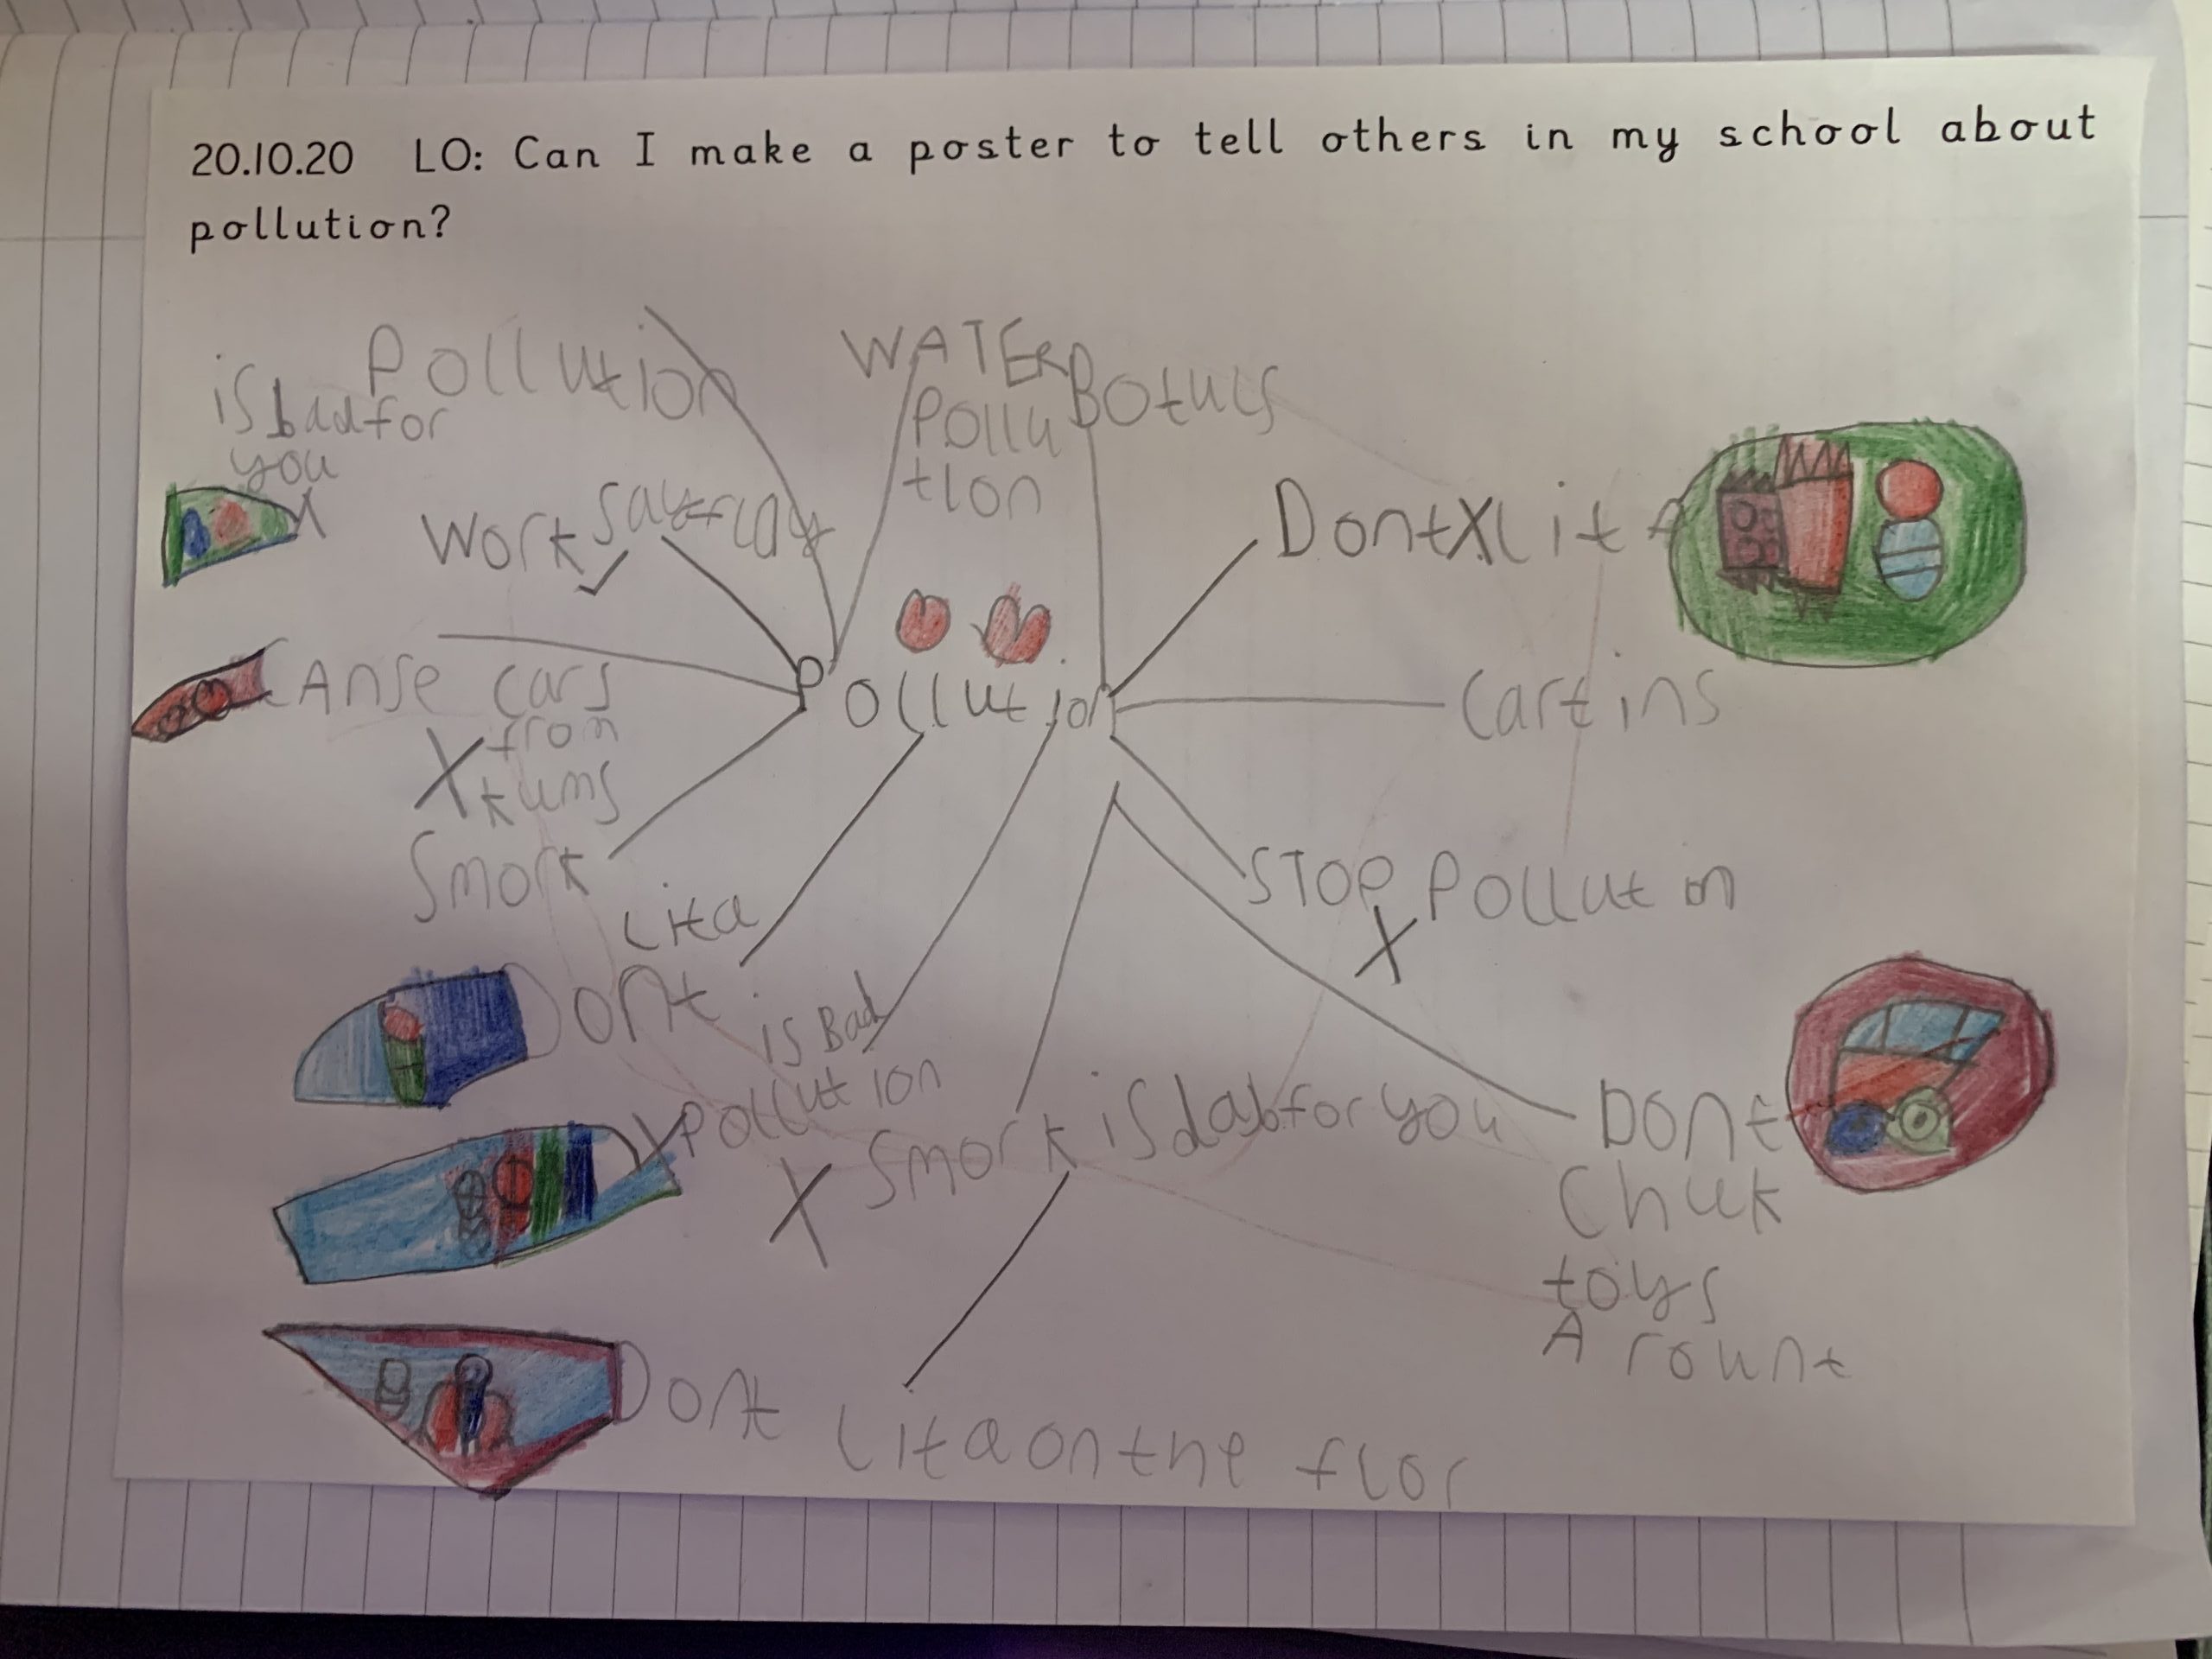 20.10.20 LO: Can I make a poster to tell others in my school about
pollution?
Pollution
is bad for
you
WATER
Pollu
tion
Botuls
Work
Dont X Lita
Canse cars
from
X kums
Smork
Pollution
Cartins
STOP Pollution
X
Lita
Dont
is Bad
X Pollution
X Smork is dab for you
Dont
Chuk
toys
A rount
Dont Lita on the flor